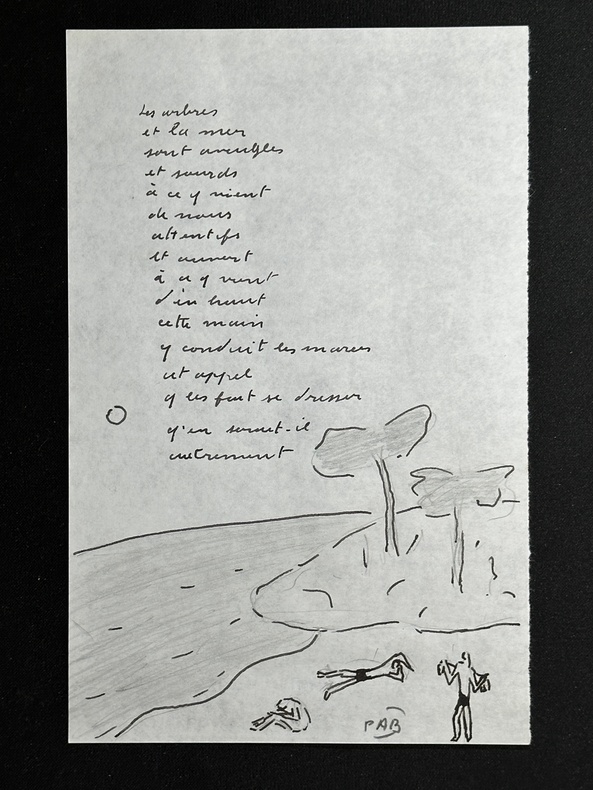 Les arbres
et la mer
sont aveugles
et sourds
à ce q vient
de nous
attentifs
et ouvert
à ce q vient
d'en haut
cette main
q conduit les marées
cet appel
q les fait se dresser
q'en serait-il
autrement
PAB